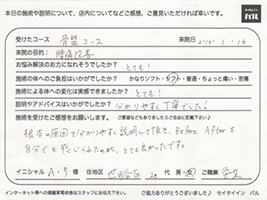 本日の施術や説明について、店内についてなどご感想、ご意見いただければ幸いです。
受けたコース 骨盤コース 来院日 2016.1.16
来院の目的: 腰痛改善
お悩み解決のお力になれそうでしたか? とても!
施術の体へのご負担はいかがでしたか? かなりソフト・ソフト・普通・ちょっと痛い・苦痛
施術による体への変化は実感できましたか? とても!
説明やアドバイスはいかがでしたか? 分かりやすく丁寧でした!
施術を受けたご感想をお願いします。
根本の原因を分かりやすく説明して頂き、Before Afterを
自分でも感じられたのが、とても良かったです。
イニシャル A・S 様 住地区 世田谷区 20代 男・女 ご職業 学生
インターネット等への掲載不可の方はスタッフにお伝え下さい。 ご協力ありがとうございました。セイタイイン パル